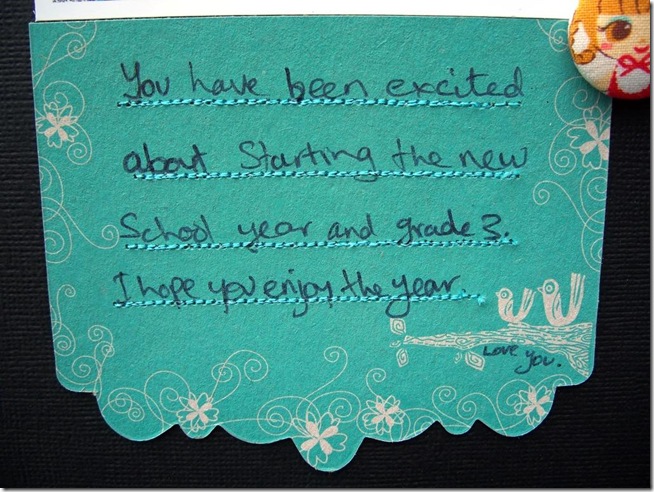 You have been excited
about Starting the new
School year and grade 3.
I hope you enjoy the year.
Love you.